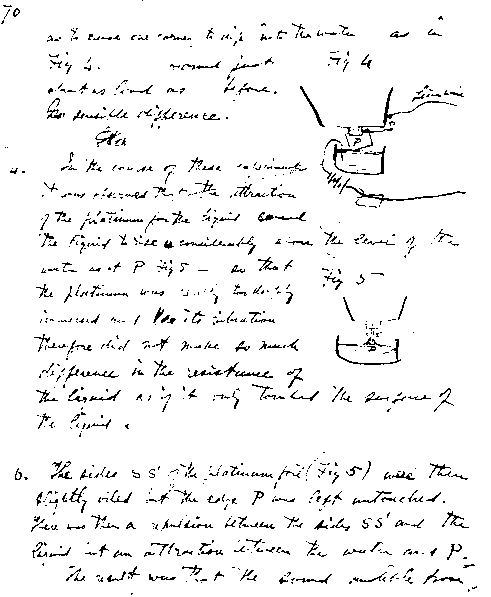 70
as to cause one corner to dip into the water as in
Fig 4. Sound just Fig 4
about as loud as before.
No sensible difference.
P
4. In the course of these experiments
it was observed that the attraction
of the platinum for the liquid caused
the liquid to rise considerably above the level of the
water as at P Fig 5 — so that
Fig 5
the platinum was really
immersed and its vibration
therefore did not make so much
difference in the resistance of
the liquid as if it only touched the surface of
the liquid.
P
5. The sides SS' of the platinum foil (Fig 5) were then
slightly oiled but the edge P was left untouched.
There was then a repulsion between the sides SS' and the
liquid but an attraction between the water and P.
The result was that the sound audible from